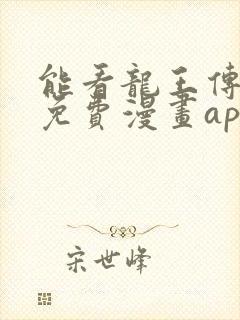 能看龍王傳
免費漫畫ap
宋世峰